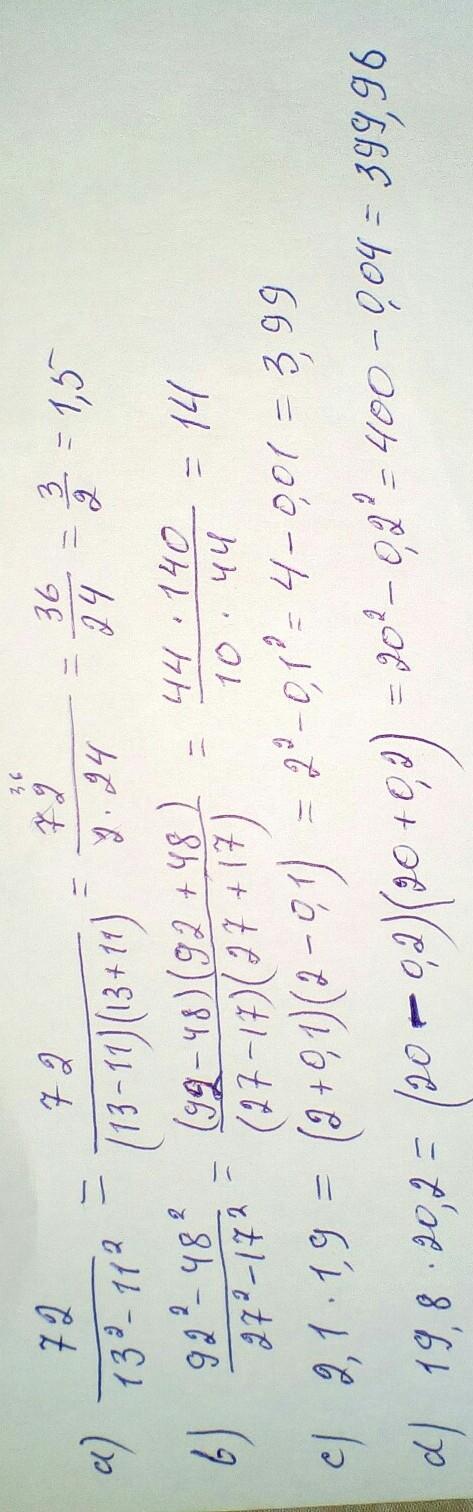 a) 72/(13² - 11²) = 72/((13 - 11)(13 + 11)) = 72 36/(2 · 24) = 36/24 = 3/2 = 1,5
b) (92² - 48²)/(27² - 17²) = ((92 - 48)(92 + 48))/((27 - 17)(27 + 17)) = (44 · 140)/(10 · 44) = 14
c) 2,1 · 1,9 = (2 + 0,1)(2 - 0,1) = 2² - 0,1² = 4 - 0,01 = 3,99
d) 19,8 · 20,2 = (20 - 0,2)(20 + 0,2) = 20² - 0,2² = 400 - 0,04 = 399,96